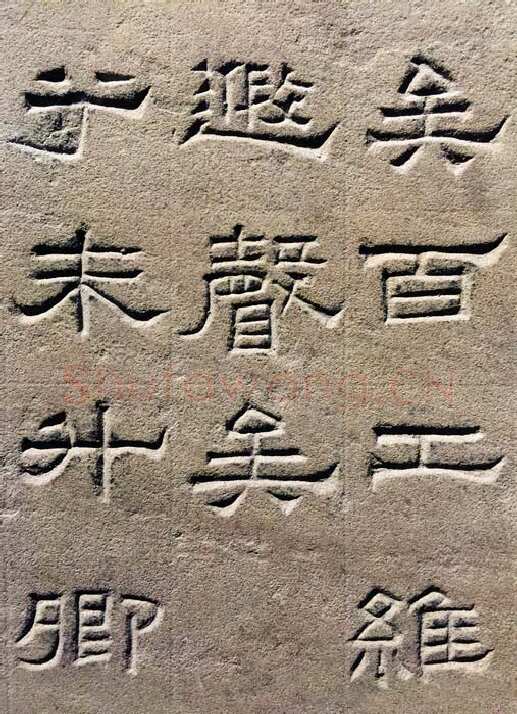 矣百工維
遐聲矣
于未升卿
Shufawang.CN